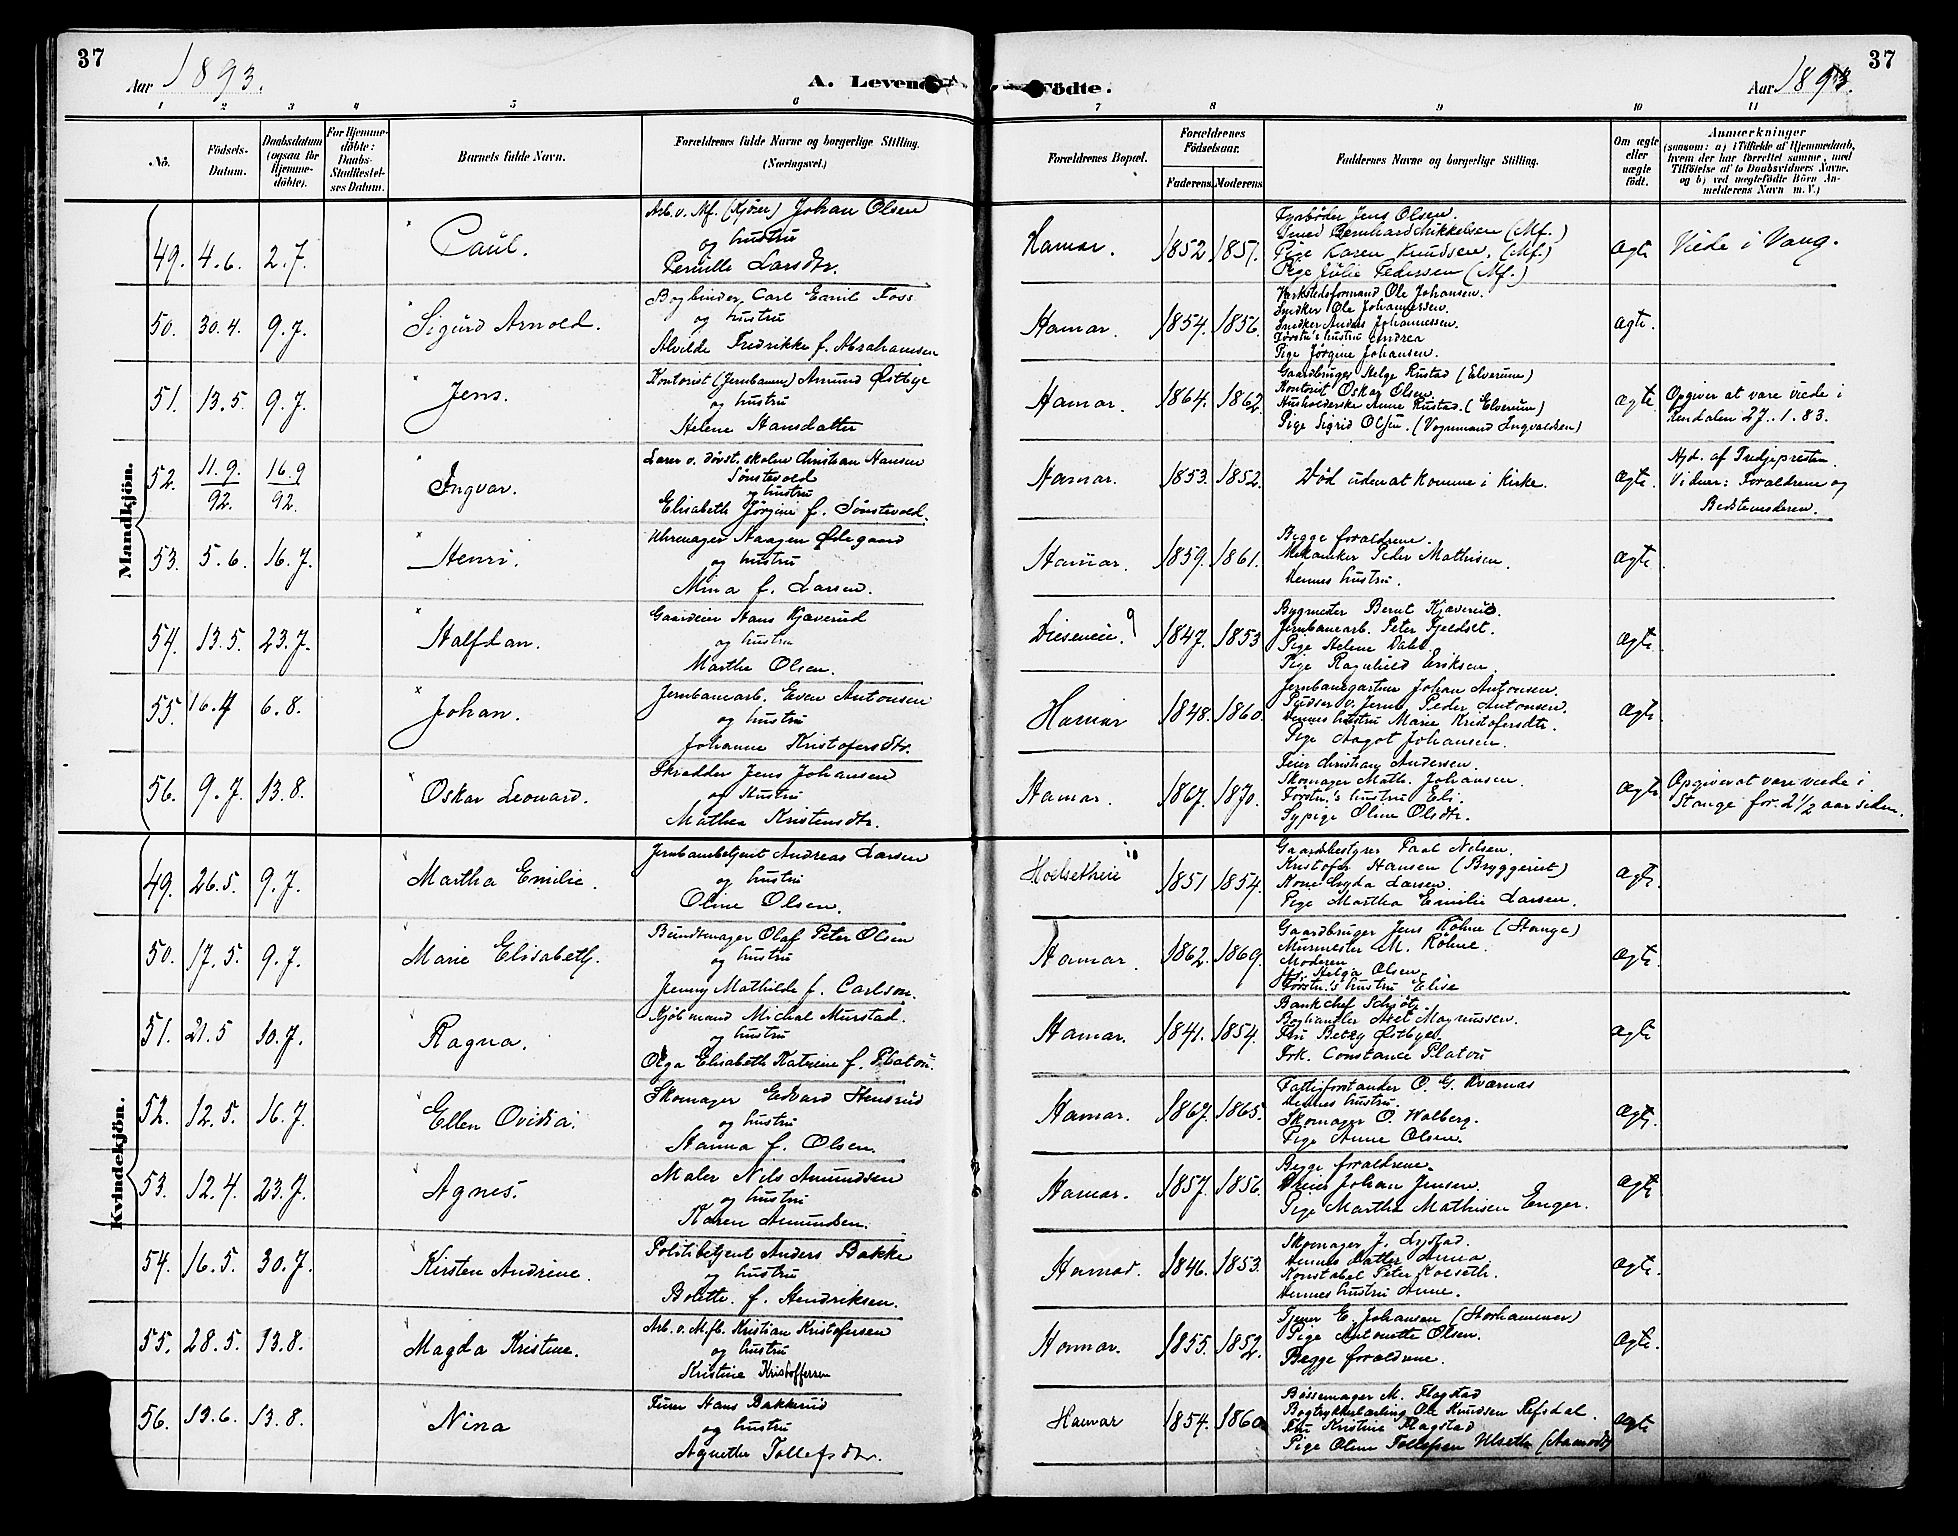 37
Aar 1893.
A. Levende Födte.
Aar 1893.
37
1 2 3 4 5 6 7 8 9 10 11
No.
Födsels-
Datum.
Daabsdatum
(ogsaa for
Hjemme-
döbte).
For Hjemme-
döbte:
Daabs-
Stadfæstel-
ses Datum.
Barnets fulde Navn.
Forældrenes fulde Navne og borgerlige Stilling.
(Næringsvei.)
Forældrenes Bopæl.
Forældrenes
Födselsaar.
Faderens. Moderens.
Faddernes Navne og borgerlige Stilling.
Om ægte
eller
uægte
født.
Anmærkninger
(saasom: a) i Tilfælde af Hjemmedaab,
hvem der har forrettet samme, med
Tilföielse af to Daabsvidners Navne,
og b) ved uægtefødte Börn An-
melderens Navn m. V.)
Mandkjön.
49. 4.6. 2.7.
Paul.
Arb. v. Mf. (Kjører) Johan Olsen
og hustru
Pernille Larsdtr.
Hamar. 1852 1857.
Fyrbøder Jens Olsen.
Smed Bernhard Mikkelsen (Mf.)
Pige Karen Knudsen, (Mf.)
Pige Julie Pedersen (Mf.)
ægte
Viede i Vang.
50. 30.4. 9.7.
Sigurd Arnold.
Bogbinder Carl Emil Foss
og hustru
Alvilde Fredrikke f. Abrahamsen
Hamar. 1854. 1856.
Værkstedsformand Ole Johansen.
Snedker Ole Johannessen.
Snedker Anders Johannessen.
Førstn's hustru Andrea
Pige Jørgine Johansen.
ægte.
51. 13.5. 9.7.
Jens.
Kontorist (Jernbanen) Amund Østbye
og hustru
Helene Hansdatter
Hamar. 1864. 1862.
Gaardbruger Helge Rustad (Elverum)
Kontorist Oskar Olsen.
Husholderske Anne Rustad. (Elverum)
Pige Sigrid Olsen. (Vognmand Ingvaldsen)
ægte.
Opgiver at være viede i
Rendalen 27.1.83.
52. 11.9/92. 16.9/92.
Ingvar.
Lærer v. døvst. skolen Christian Hansen
Sønstevold
og hustru
Elisabeth Jørgine f. Sønstevold.
Hamar. 1853. 1852.
Død uden at komme i kirke.
ægte.
Hjd. af Tredjepresten.
Vidner: Forældrene og
Bedstemoderen.
53. 5.6. 16.7.
Henri.
Uhrmager Haagen Ødegaard
og hustru
Mina f. Larsen.
Hamar. 1859. 1861.
Begge forældrene.
Mekaniker Peder Mathisen.
Hennes hustru.
ægte.
54. 13.5. 23.7.
Halfdan.
Gaardeier Hans Kjæverud
og hustru
Marthe Olsen.
1847. 1853
Bygmester Bernt Kjæverud.
Jernbanearb. Peter Fjeldset.
Pige Helene Dahl.
Pige Ragnhild Eriksen.
ægte.
55. 16.4 6.8.
Johan.
Jernbanearb. Even Antonsen
og hustru
Johanne Kristofersdtr.
Hamar 1848. 1860.
Jernbanegartner Johan Antonsen.
Pudser v. Jernb. Peder Antonsen.
Hennes hustru Marie Kristofersdtr.
Pige Aagot Johansen.
ægte.
56. 9.7. 13.8.
Oskar Leonard.
Skrædder Jens Johansen
og Hustru
Mathea Kristensdtr.
Hamar. 1867. 1870.
Feier Christian Andersen.
Skomager Math. Johansen.
Førstn.'s hustru Eli.
Sypige Oline Olsdtr.
ægte
Opgiver at være viede i
Stange for 2½ aar siden.
Kvindekjön.
49. 26.5. 9.7.
Martha Emilie.
Jernbanebetjent Andreas Larsen
og hustru
Oline Olsen.
Holsetheie 1851 1854.
Gaardsbestyrer Paal Nelsen.
Kristofer Hansen (Bryggeriet)
Kone Gyda Larsen.
Pige Martha Emilie Larsen.
ægte.
50. 17.5. 9.7.
Marie Elisabeth.
Bundtmager Olaf Peter Olsen
og hustru
Jenny Mathilde f. Carlson.
Hamar. 1862. 1869.
Gaardbruger Jens Røhne (Stange)
Murmester M. Røhne.
Moderen
Helga Olsen
Førstn.'s hustru Elise
ægte.
51. 21.5 10.7.
Ragna.
Kjøbmand Michal Murstad.
og hustru
Olga Elisabeth Katrine f. Platou.
Hamar. 1841. 1854.
Bankchef Schjøtz
Boghandler Axel Magnussen.
Fru Betzy Østbye.
Frk. Constance Platou
ægte
52. 12.5. 16.7.
Ellen Ovidia.
Skomager Edvard Stensrud
og hustru
Hanna f. Olsen.
Hamar. 1867. 1865.
Fattigforstander O. G. Kværnæs
Hennes hustru.
Skomager O. Walberg.
Pige Anne Olsen.
ægte.
53. 12.4. 23.7.
Agnes.
Maler Nils Amundsen
og hustru
Karen Amundsen.
Hamar. 1857. 1856.
Begge forældrene.
Dreier Johan Jensen.
Pige Marthe Mathisen Enger.
ægte.
54. 16.5. 30.7.
Kirsten Andrine.
Politibetjent Anders Bakke
og hustru
Bolette f. Hendriksen.
Hamar. 1846. 1853.
Skomager J. Lystad.
Hennes Datter Anna
Konstabel Peter Kolseth.
Hennes hustru Anne.
ægte.
55. 28.5. 13.8.
Magda Kristine.
Arb. v. M.fb. Kristian Kristofersen
og hustru
Kristine Kristoffersen
Hamar. 1855. 1852.
Tjener E. Johansen (Storhammer)
Pige Antonette Olsen.
Begge forældrene.
ægte.
56. 13.6. 13.8.
Nina
Feier Hans Bakkerud
og hustru
Agnethe Tollefsdtr.
Hamar 1854. 1860
Bøssemager M. Flagstad
Bogtrykkerlærling Ole Knudsen Refsdal.
Fru Kristine Flagstad
Pige Oline Tollefsen Ulseth (Aamodt)
ægte